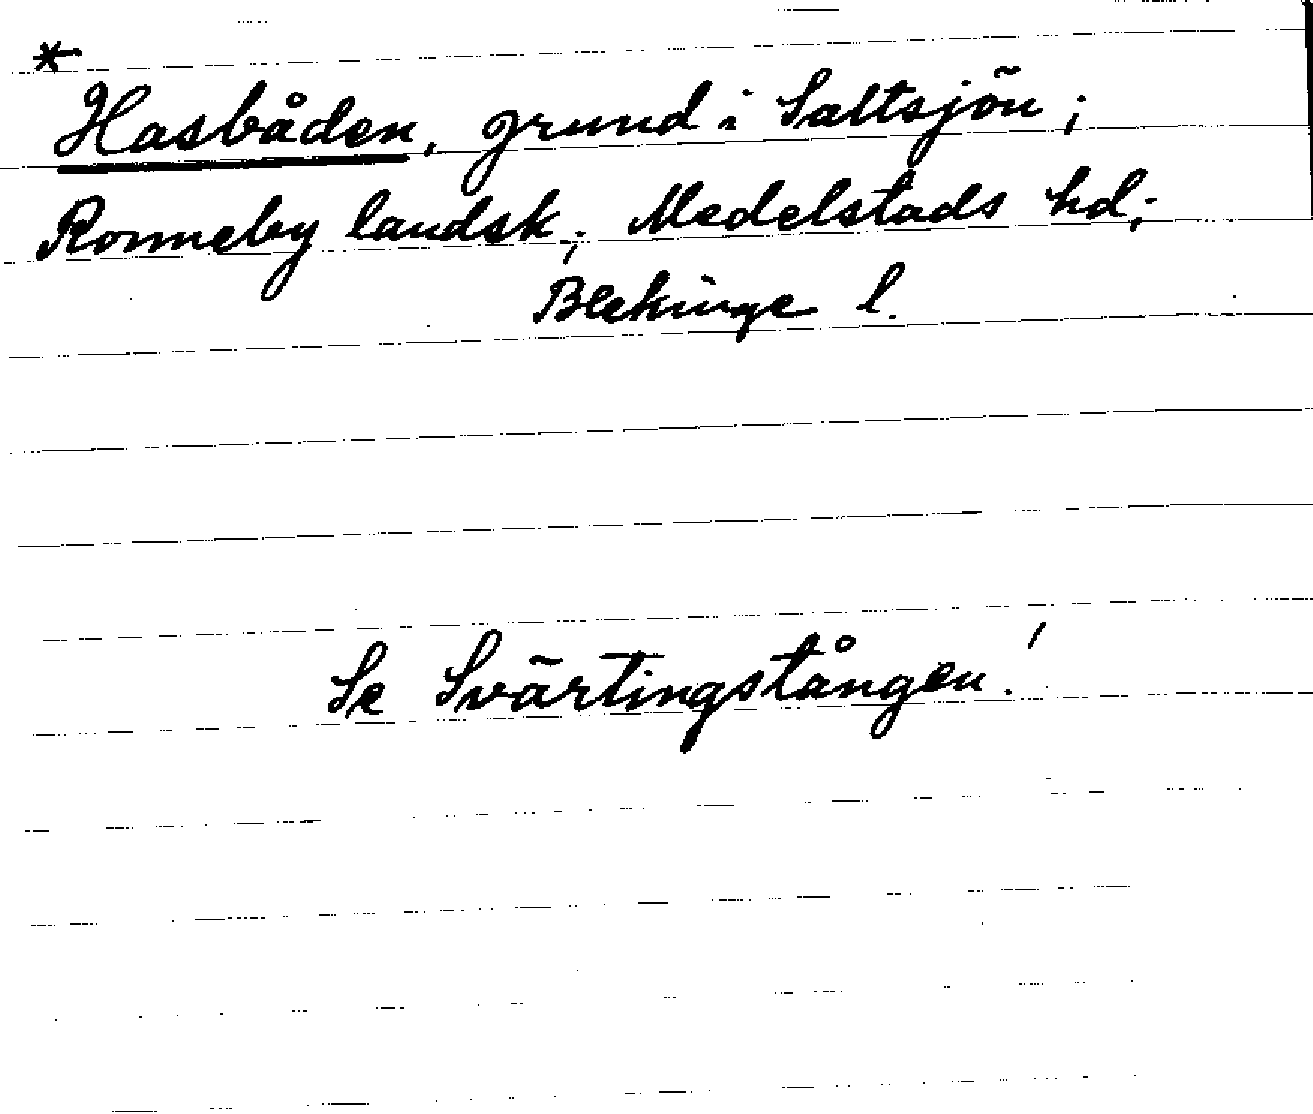 *
Hasbåden, grund i Saltsjön;
Ronneby landsk; Medelstads hd;
Blekinge l.
Se Svärtingstången!